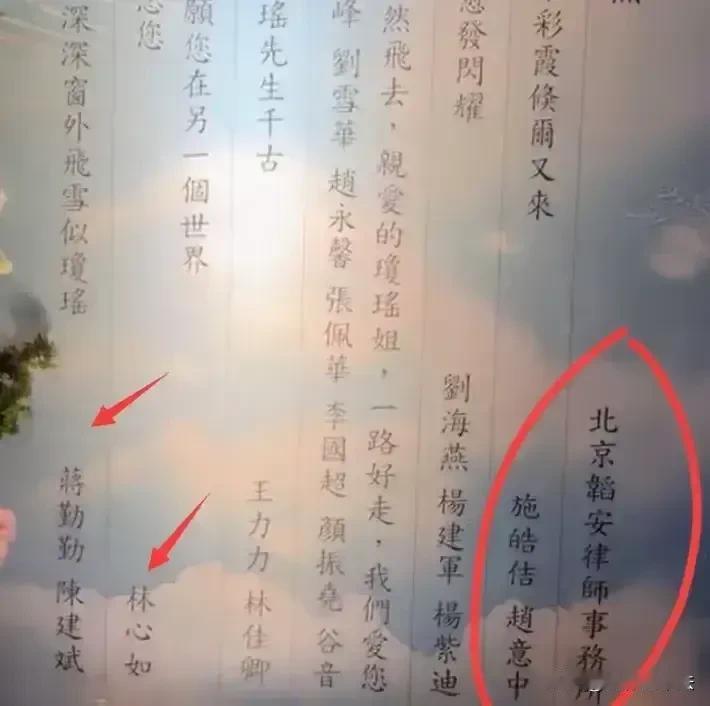 北京韜安律師事務所
彩霞倏爾又來
施皓佶 趙意中
您發閃耀
劉海燕 楊建軍 楊紫迪
然飛去，親愛的瓊瑤姐，一路好走，我們愛您
峰 劉雪華 趙永馨 張佩華 李國超 顏振堯 谷音
瑤先生千古
王力力 林佳卿
願您在另一個世界
您您
林心如
深深窗外飛雪似瓊瑤
蔣勤勤 陳建斌